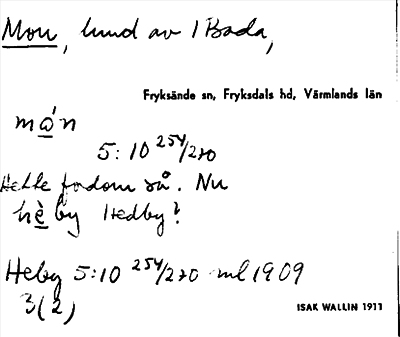 Mon, lund av 1 Bada,
Fryksände sn, Fryksdals hd, Värmlands län
mǫ́n
5:10 254/270
Hette fordom så. Nu
hè̱by Hedby?
Heby 5:10 254/270 ml 1909
3(2)
ISAK WALLIN 1911